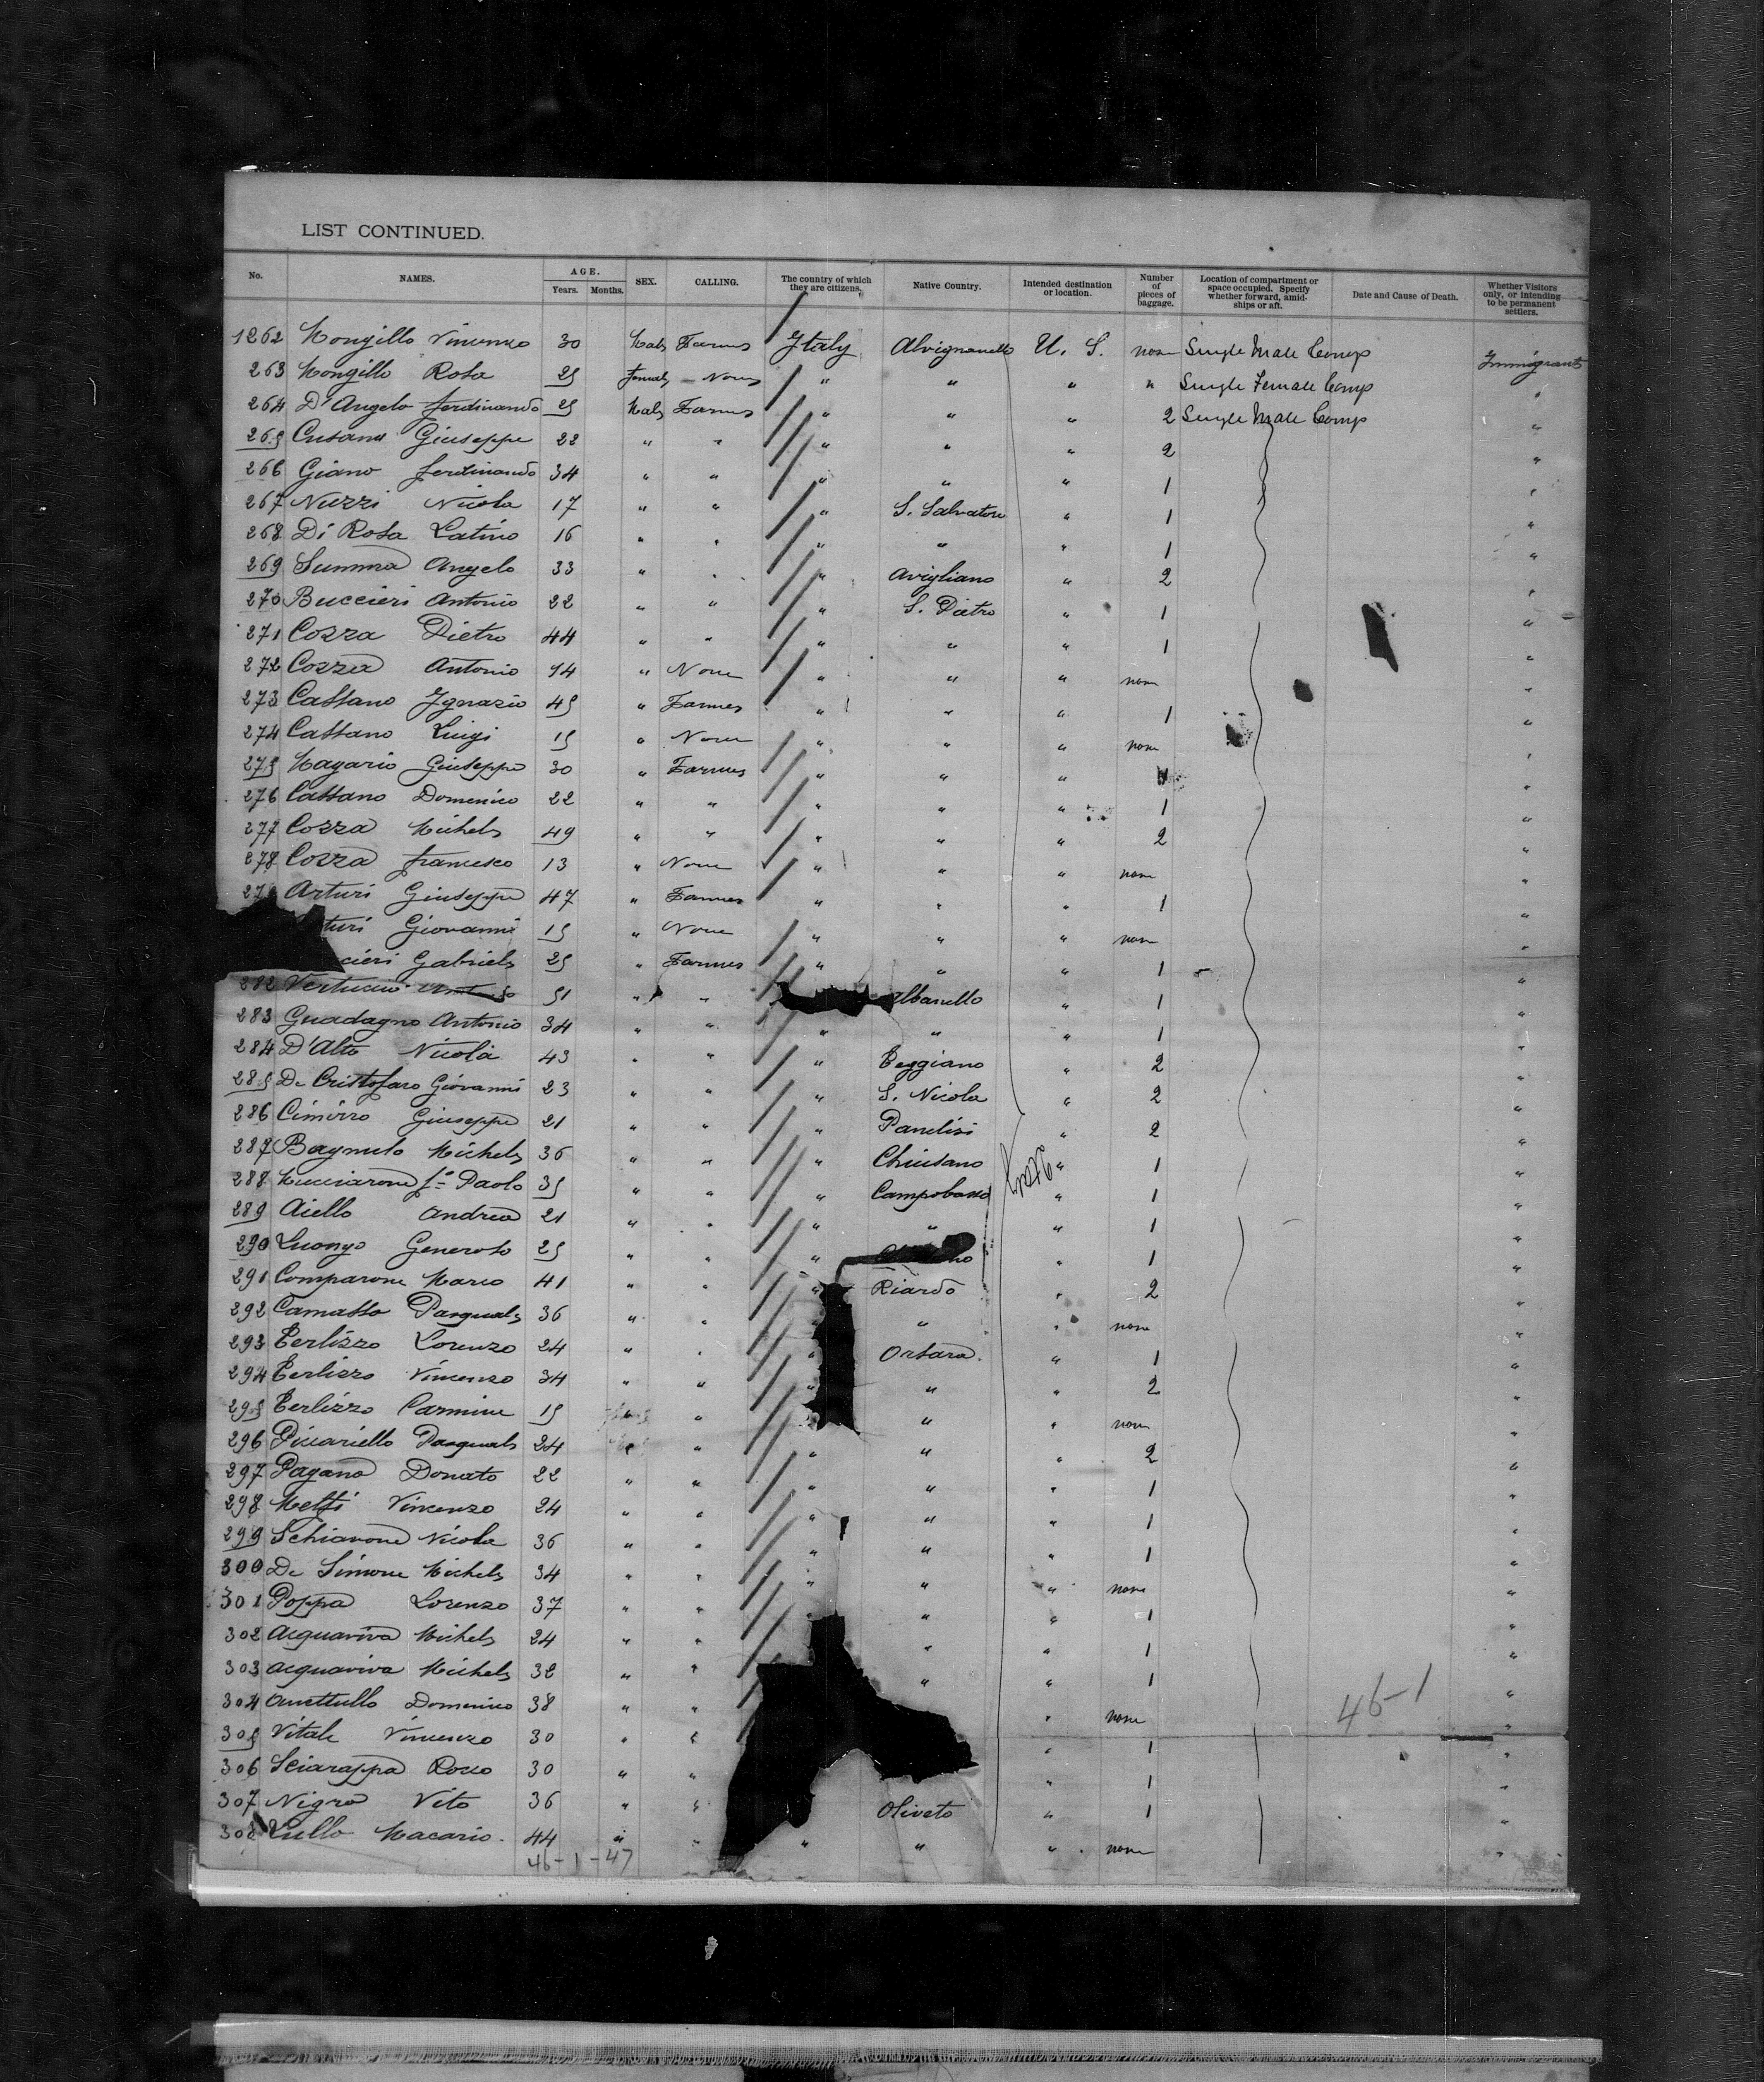 LIST CONTINUED.
No. NAMES. AGE. Years. Months. SEX. CALLING. The country of which they are citizens. Native Country. Intended destination or location. Number of pieces of baggage. Location of compartment or space occupied. Specify whether forward, amidships or aft. Date and Cause of Death. Whether Visitors only, or intending to be permanent settlers.
1262 Mongillo Vincenzo 30 Male Farmer Italy Alvignanello U. S. none Single Male Comp Immigrants
263 Mongillo Rosa 25 Female None " " " " Single Female Comp "
264 D'Angelo Ferdinando 25 Male Farmer " " " 2 Single Male Comp "
265 Cusano Giuseppe 22 " " " " " 2 "
266 Giano Ferdinando 34 " " " " " 1 "
267 Nuzzi Nicola 17 " " " S. Salvatore " 1 "
268 Di Rosa Latino 16 " " " " " 1 "
269 Summa Angelo 33 " " " Avigliano " 2 "
270 Buccieri Antonio 22 " " " S. Pietro " 1 "
271 Cozza Pietro 44 " " " " " 1 "
272 Cozza Antonio 14 " None " " " none "
273 Cassano Ignazio 45 " Farmer " " " 1 "
274 Cassano Luigi 15 " None " " " none "
275 Magario Giuseppe 30 " Farmer " " " "
276 Cassano Domenico 22 " " " " " 1 "
277 Cozza Michele 49 " " " " " 2 "
278 Cozza Francesco 13 " None " " " none "
27 Arturi Giuseppe 47 " Farmer " " " 1 "
turi Giovanni 15 " None " " " none "
cieri Gabriele 25 " Farmer " " " 1 "
282 Vertucci 51 " " Albanello " 1 "
283 Guadagno Antonio 34 " " " " " 1 "
284 D'Alto Nicola 43 " " " Teggiano " 2 "
285 De Cristofaro Giovanni 23 " " " S. Nicola " 2 "
286 Cimirro Giuseppe 21 " " " " 2 "
287 Bagnulo Michele 36 " " " Chiusano " 1 "
288 Mucciarone Paolo 35 " " " Campobasso " 1 "
289 Aiello Andrea 21 " " " " " 1 "
290 Luongo Generoso 25 " " " " 1 "
291 Comparone Marco 41 " " " Riardo " 2 "
292 Camasso Pasquale 36 " " " " none "
293 Terlizzo Lorenzo 24 " " " Orsara " 1 "
294 Terlizzo Vincenzo 34 " " " " " 2 "
295 Terlizzo Carmine 15 " " " " none "
296 Piccariello Pasquale 24 " " " " " 2 "
297 Pagano Donato 22 " " " " " 1 "
298 Melfi Vincenzo 24 " " " " " 1 "
299 Schiavone Nicola 36 " " " " " 1 "
300 De Simone Michele 34 " " " " " none "
301 Poppa Lorenzo 37 " " " " " 1 "
302 Acquaviva Michele 24 " " " " 1 "
303 Acquaviva Michele 32 " " " " 1 "
304 Domenico 38 " " " none "
305 Vitale Vincenzo 30 " " " 1 "
306 Sciarappa Rocco 30 " " " 1 "
307 Nigro Vito 36 " " Oliveto " 1 "
308 Lullo Macario 44 " " " " " none "
46-1
46-1-47